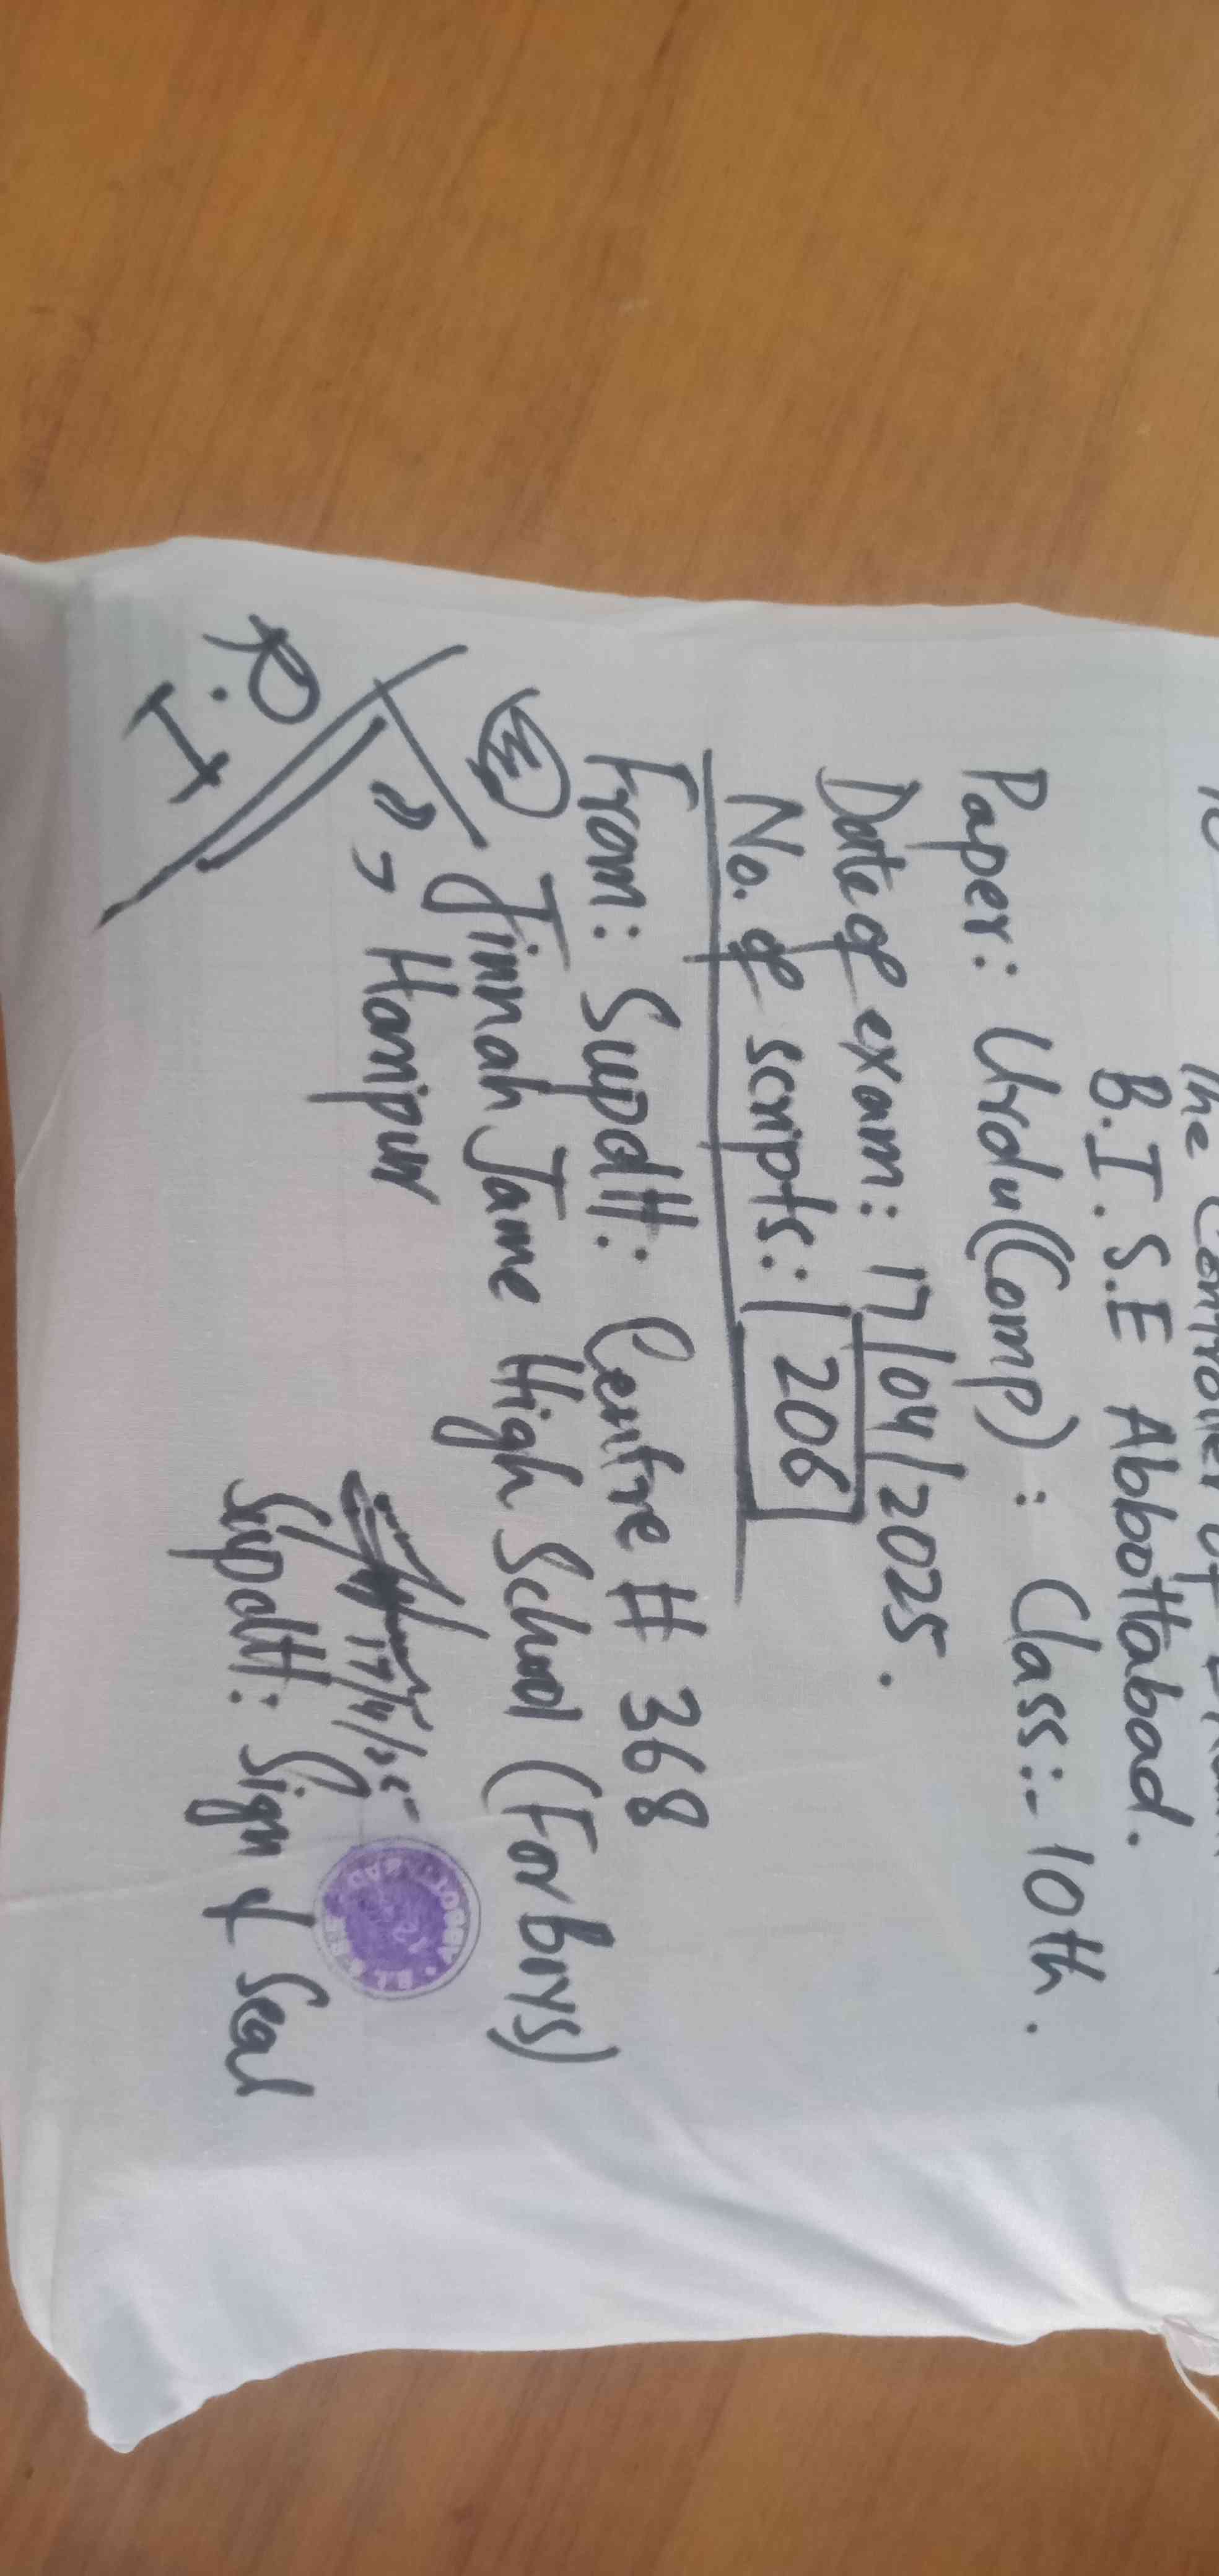 The Controller of
B.I.S.E Abbottabad.
Paper: Urdu(Comp): Class:- 10th.
Date of exam: 17/04/2025.
No. of scripts: 206
From: Supdtt: Centre # 368
Jinnah Jame High School (For Boys)
Haripur
17/4/25
Supdtt: Sign & Seal
R.I